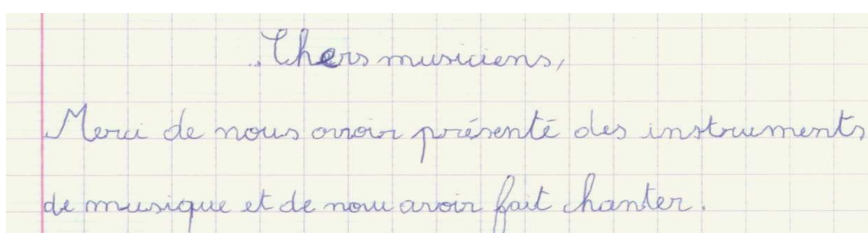 Chers musiciens,
Merci de nous avoir présenté des instruments
de musique et de nous avoir fait chanter.